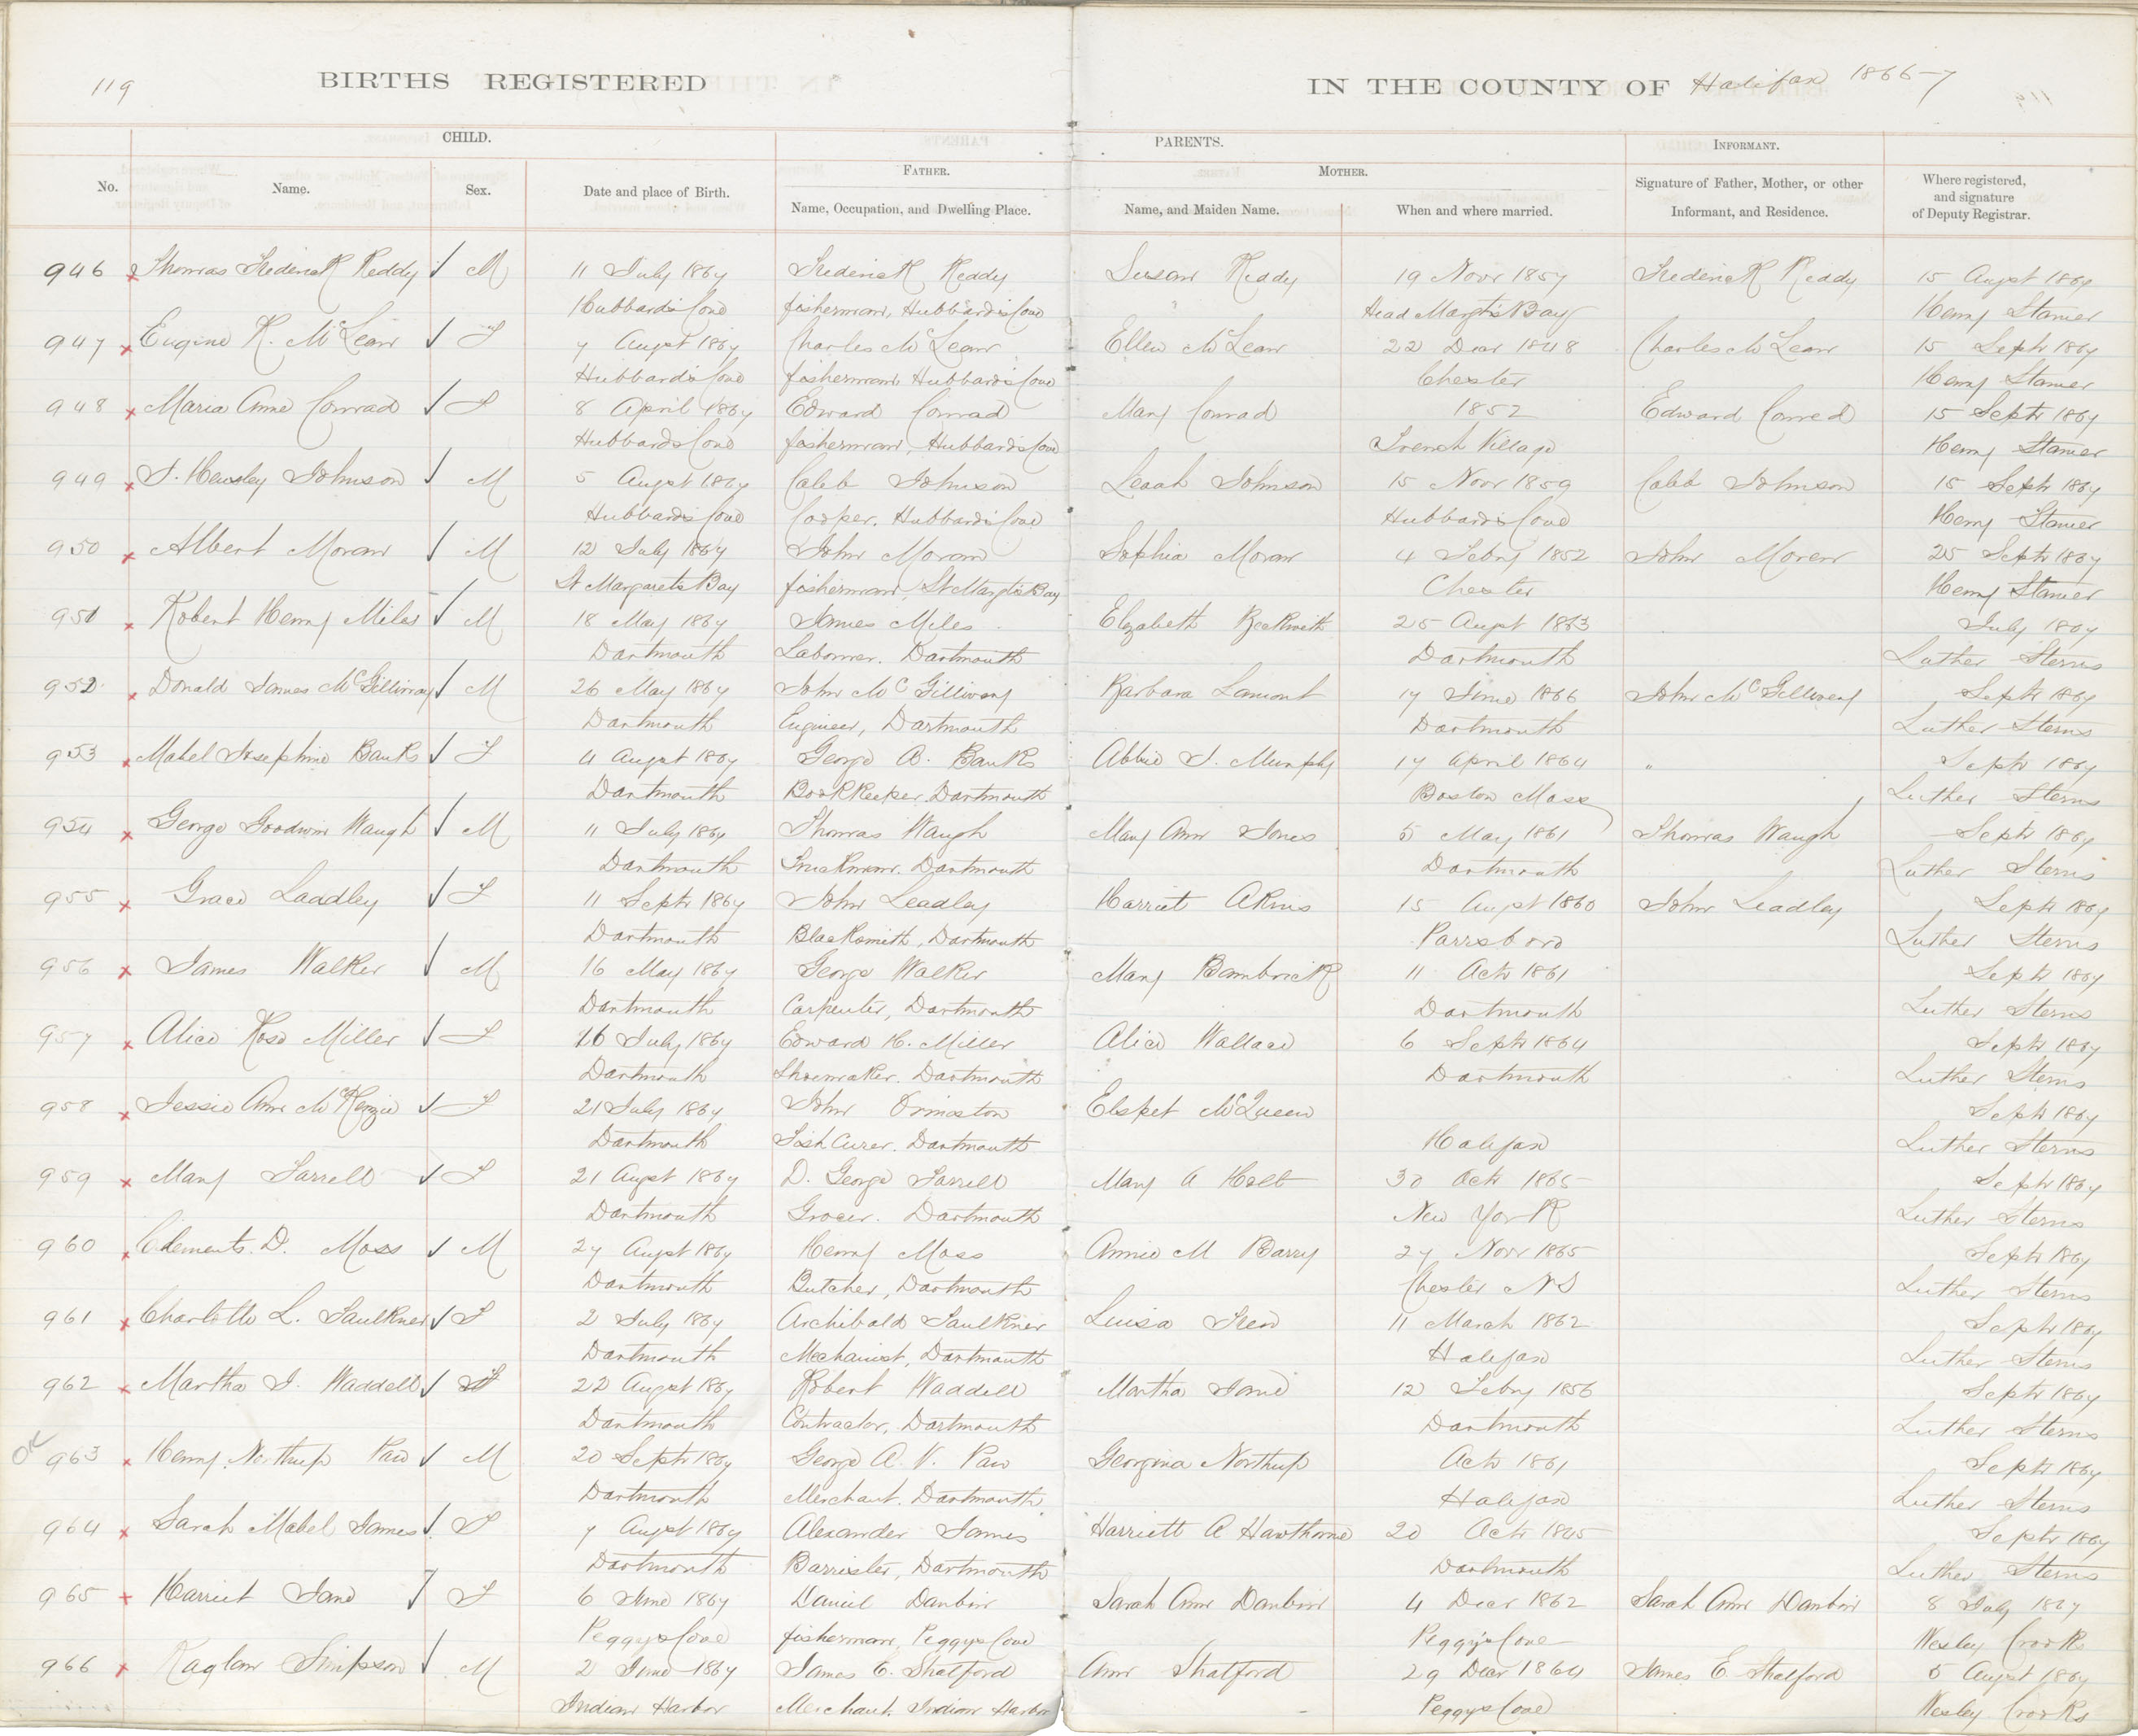 119 BIRTHS REGISTERED IN THE COUNTY OF Halifax 1866-7
CHILD. PARENTS. INFORMANT.
FATHER. MOTHER.
No. Name. Sex. Date and place of Birth. Name, Occupation, and Dwelling Place. Name, and Maiden Name. When and where married. Signature of Father, Mother, or other Informant, and Residence. Where registered, and signature of Deputy Registrar.
946 Thomas Frederick Reddy M 11 July 1867 Frederick Reddy Susan Reddy 19 Novr 1857 Frederick Reddy 15 Augst 1867
Hubbards Cove fisherman, Hubbards Cove Head Margts Bay Henry Stamer
947 Eugine R. McLean F 7 Augst 1867 Charles McLean Ellen McLean 22 Decr 1848 Charles McLean 15 Septr 1867
Hubbards Cove fisherman Hubbards Cove Chester Henry Stamer
948 Maria Anne Conrad F 8 April 1867 Edward Conrad Mary Conrad 1852 Edward Conred 15 Septr 1867
Hubbards Cove fisherman, Hubbards Cove French Village Henry Stamer
949 Hensley Johnson M 5 Augst 1867 Caleb Johnson Leaah Johnson 15 Novr 1859 Caleb Johnson 15 Septr 1867
Hubbards Cove Cooper. Hubbards Cove Hubbards Cove Henry Stamer
950 Albert Moran M 12 July 1867 John Moran Sophia Moran 4 Febry 1852 John Moren 25 Septr 1867
St Margarets Bay fisherman, St Margts Bay Chester Henry Stamer
951 Robert Henry Miles M 18 May 1867 James Miles Elizabeth Beckwith 25 Augst 1863 July 1867
Dartmouth Labourer. Dartmouth Dartmouth Luther Sterns
952 Donald James McGillivray M 26 May 1867 John McGillivery Barbara Lamont 17 June 1866 John McGillivery Septr 1867
Dartmouth Engineer, Dartmouth Dartmouth Luther Sterns
953 Mabel Josephine Banks F 4 August 1867 George B. Banks Abbie J. Murphy 17 April 1864 " Septr 1867
Dartmouth BookKeeper Dartmouth Boston Mass Luther Sterns
954 George Goodwin Waugh M 11 July 1867 Thomas Waugh Mary Ann Jones 5 May 1861 Thomas Waugh Septr 1867
Dartmouth Truckman. Dartmouth Dartmouth Luther Sterns
955 Grace Laadley F 11 Septr 1867 John Leadley Harriet Akins 15 Augst 1860 John Leadley Septr 1867
Dartmouth Blacksmith, Dartmouth Parrsboro Luther Sterns
956 James Walker M 16 May 1867 George Walker Mary Bambrick 11 Octr 1861 Septr 1867
Dartmouth Carpenter, Dartmouth Dartmouth Luther Sterns
957 Alice Rose Miller F 16 July 1867 Edward H. Miller Alice Wallace 6 Septr 1864 Septr 1867
Dartmouth Shoemaker. Dartmouth Dartmouth Luther Sterns
958 Jessie Ann McKenzie F 21 July 1867 John Ormiston Elspet McQueen Septr 1867
Dartmouth Fish Curer. Dartmouth Halifax Luther Sterns
959 Mary Farrell F 21 Augst 1867 D. George Farrell Mary A Holt 30 Octr 1865 Septr 1867
Dartmouth Grocer. Dartmouth New York Luther Sterns
960 Clements. D. Moss M 27 Augst 1867 Henry Moss Annie M Barry 27 Novr 1865 Septr 1867
Dartmouth Butcher, Dartmouth Chester NS Luther Sterns
961 Charlotte L. Faulkner F 2 July 1867 Archibald Faulkner Luisa 11 March 1862 Septr 1867
Dartmouth Mechanist, Dartmouth Halifax Luther Sterns
962 Martha J. Waddell F 22 August 1867 Robert Waddell Martha Jane 12 Febry 1856 Septr 1867
Dartmouth Contractor, Dartmouth Dartmouth Luther Sterns
OK 963 Henry Northup Paw M 20 Septr 1867 George A. V. Paw Georgina Northup Octr 1861 Septr 1867
Dartmouth Merchant. Dartmouth Halifax Luther Sterns
964 Sarah Mabel James F 7 Augst 1867 Alexander James Harriett A Hawthorne 20 Octr 1865 Septr 1867
Dartmouth Barrister, Dartmouth Dartmouth Luther Sterns
965 Harriet Jane F 6 June 1867 Daniel Daubin Sarah Ann Daubin 4 Decr 1862 Sarah Ann Daubin 8 July 1867
Peggys Cove fisherman, Peggys Cove Peggy's Cove Wesley Crooks
966 Raglan Simpson M 2 June 1867 James E. Shatford Ann Shatford 29 Decr 1864 James E. Shatford 5 Augst 1867
Indian Harbor Merchant. Indian Harbor Peggys Cove Wesley Crooks